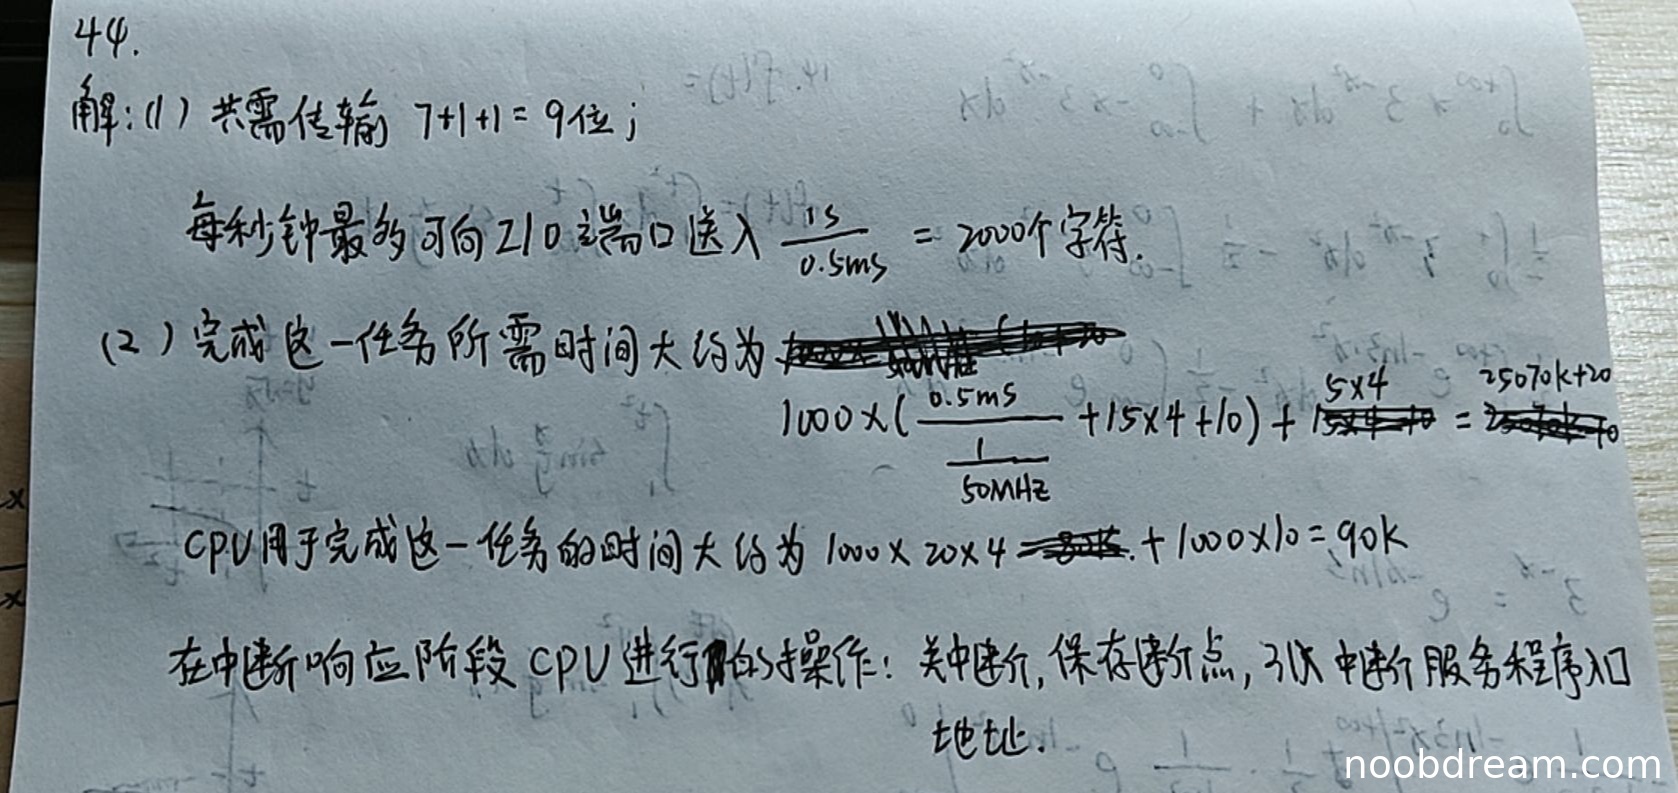 44.
解:(1) 共需传输 7+1+1=9位;
每秒钟最多可向I/O端口送入 1s/0.5ms = 2000个字符.
(2) 完成这一任务所需时间大约为
1000×(0.5ms/(1/50MHz) +15×4+10)+ 5×4 = 25070k+20
CPU用于完成这一任务的时间大约为 1000×20×4 +1000×10=90k
在中断响应阶段CPU进行的操作: 关中断, 保存断点, 引出中断服务程序入口
地址.
noobdream.com